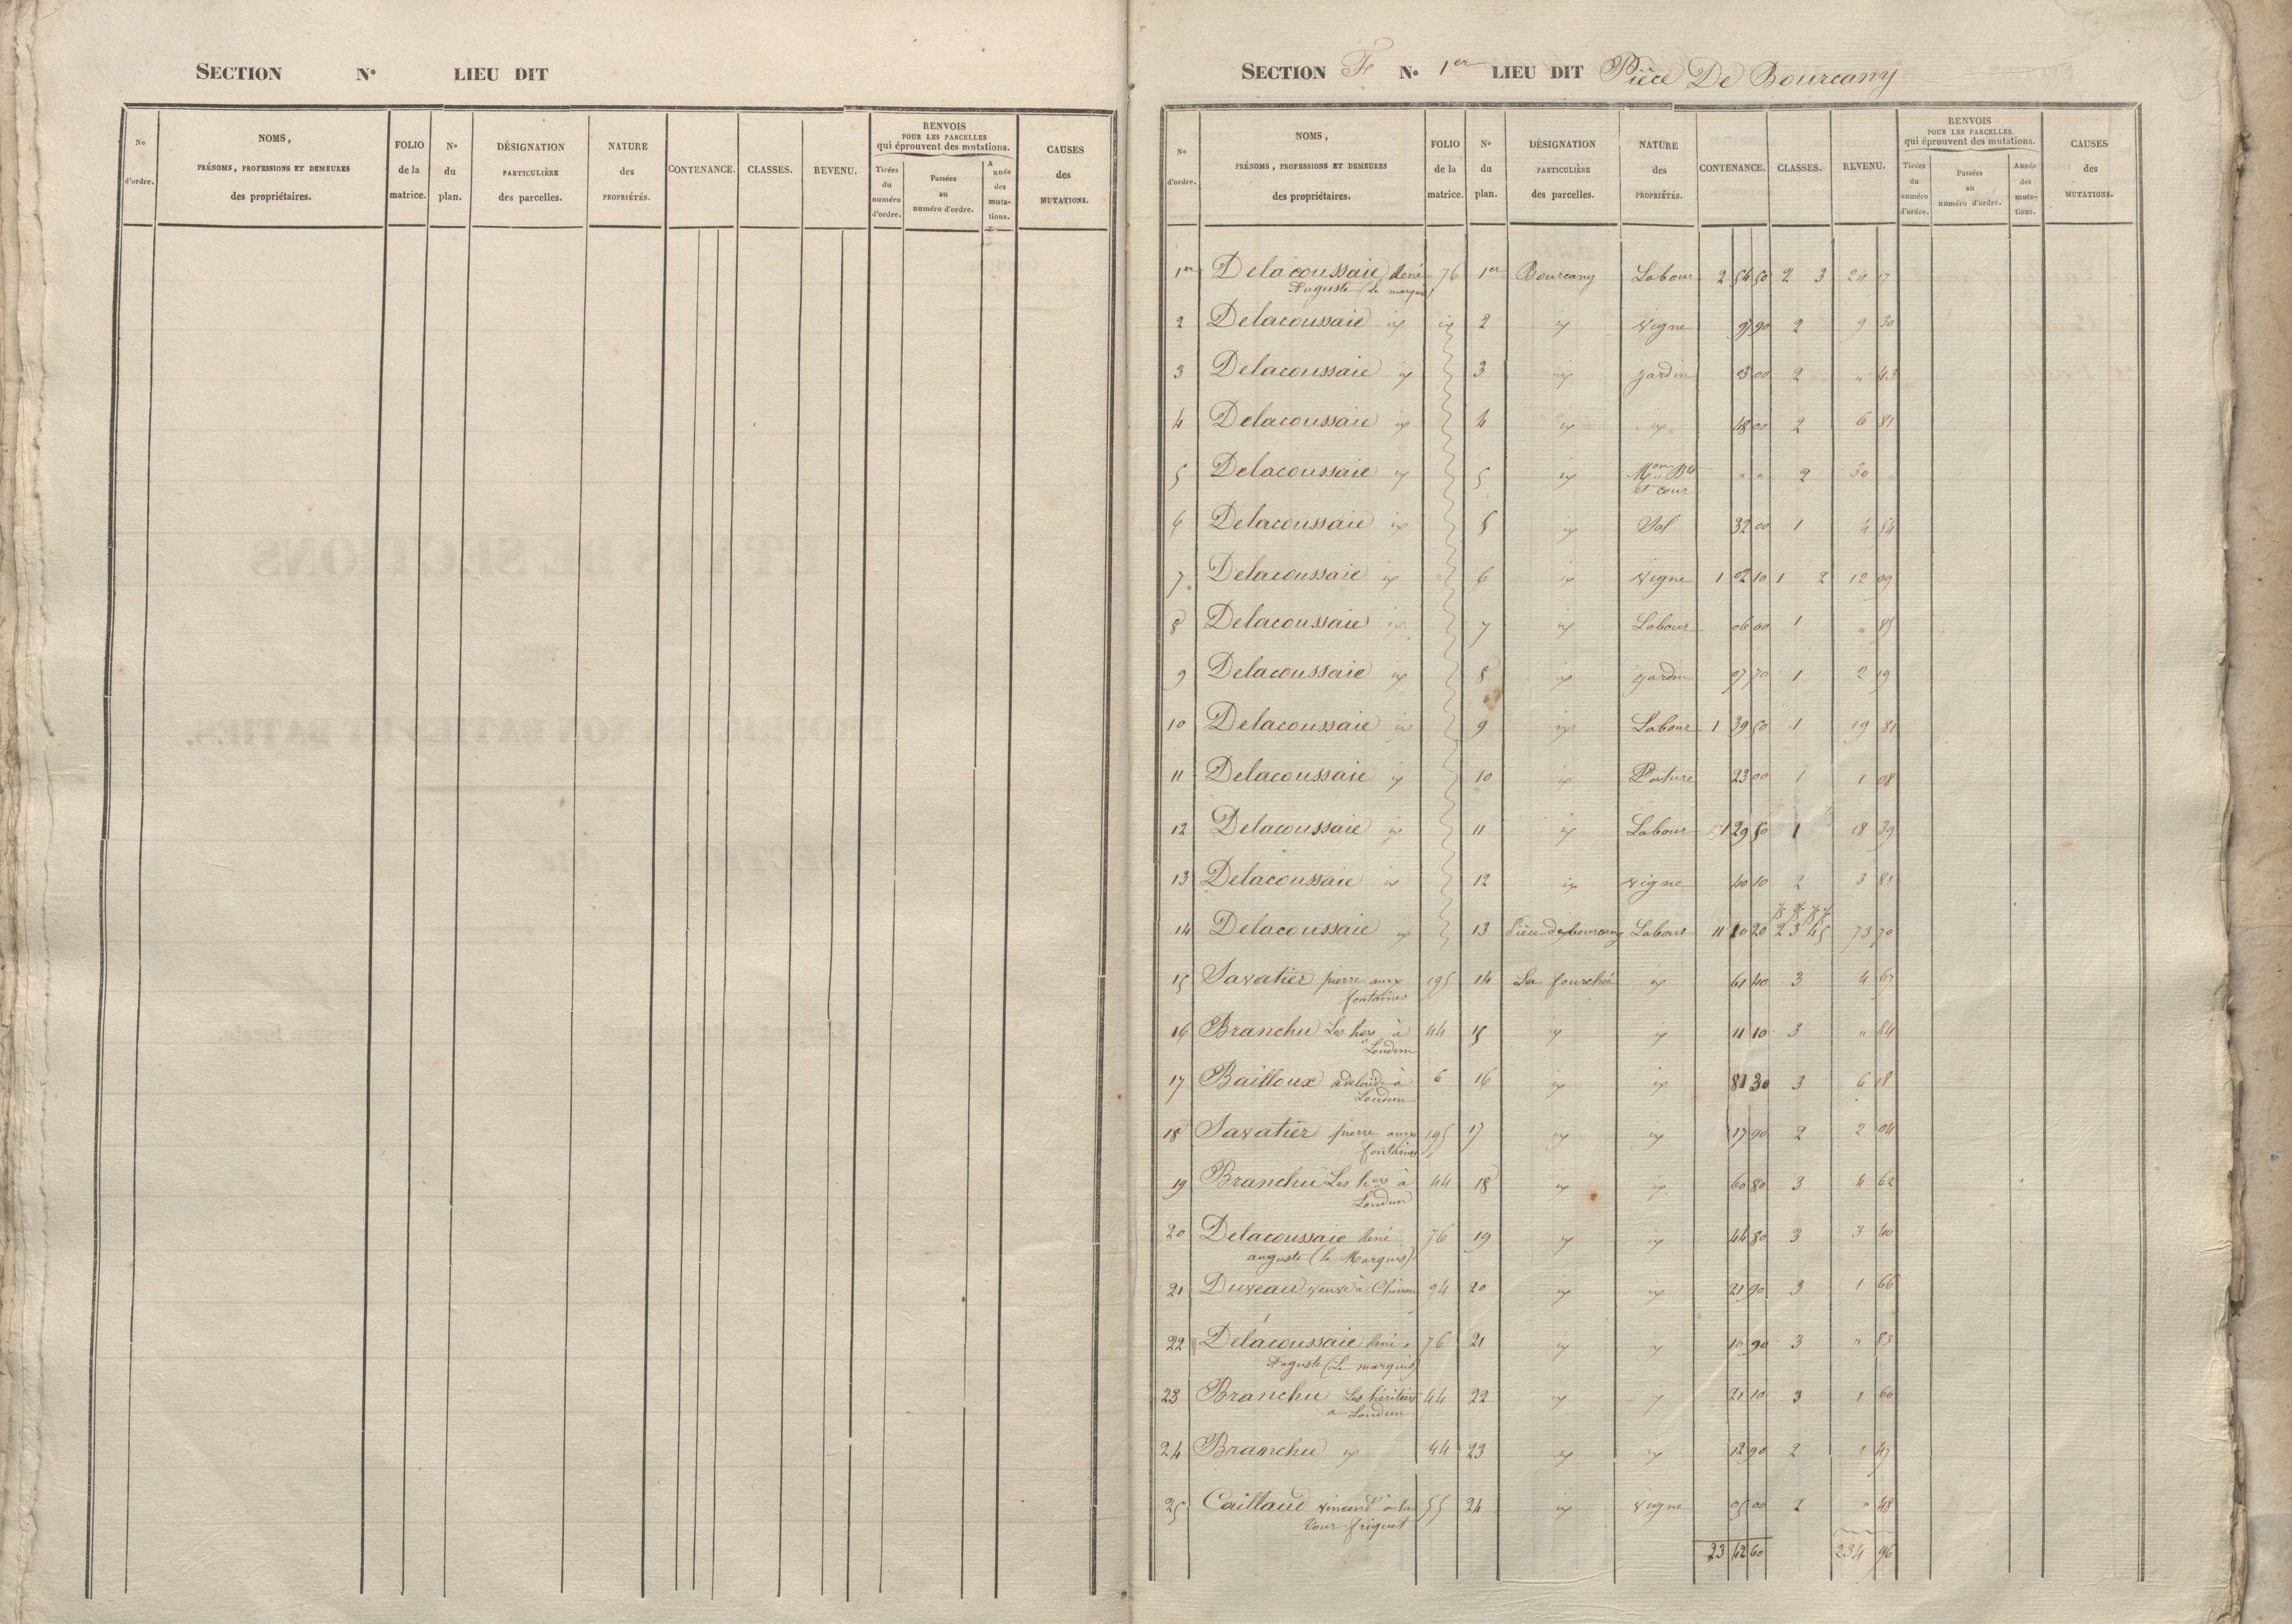 SECTION N° LIEU DIT
N° d'ordre. NOMS, PRÉNOMS, PROFESSIONS ET DEMEURES des propriétaires. FOLIO de la matrice. N° du plan. DÉSIGNATION PARTICULIÈRE des parcelles. NATURE des PROPRIÉTÉS. CONTENANCE. CLASSES. REVENU. RENVOIS POUR LES PARCELLES qui éprouvent des mutations. Tirées du numéro d'ordre. Passées au numéro d'ordre. Année des mutations. CAUSES des MUTATIONS.
SECTION F N° 1er LIEU DIT Pièce De Bourcany
N° d'ordre. NOMS, PRÉNOMS, PROFESSIONS ET DEMEURES des propriétaires. FOLIO de la matrice. N° du plan. DÉSIGNATION PARTICULIÈRE des parcelles. NATURE des PROPRIÉTÉS. CONTENANCE. CLASSES. REVENU. RENVOIS POUR LES PARCELLES qui éprouvent des mutations. Tirées du numéro d'ordre. Passées au numéro d'ordre. Année des mutations. CAUSES des MUTATIONS.
1er Delacoussaie René 76 1er Bourcany Labour 2 54 50 2 3 24 17
Auguste (Le marquis)
2 Delacoussaie id id 2 id vigne 97 90 2 9 30
3 Delacoussaie id 3 id jardin 03 00 2 " 43
4 Delacoussaie id 4 id id 48 00 2 6 81
5 Delacoussaie id 5 id Mon Bt " " 2 30 "
et cour
6 Delacoussaie id 5 id Sol 32 00 1 4 54
7 Delacoussaie id 6 id vigne 1 02 10 1 2 12 09
8 Delacoussaie id 7 id Labour 06 00 1 " 85
9 Delacoussaie id 8 id jardin 07 70 1 2 19
10 Delacoussaie id 9 id Labour 1 39 50 1 19 81
11 Delacoussaie id 10 id Pature 23 00 1 1 08
12 Delacoussaie id 11 id Labour 1 29 50 1 18 39
13 Delacoussaie id 12 id vigne 40 10 2 3 81
14 Delacoussaie id 13 Pièce de bourcany Labour 11 10 20 2 3 4 5 73 70
15 Savatier pierre aux 195 14 La fourché id 61 40 3 4 67
fontaines
16 Branchu Les hers à 44 15 id id 11 10 3 " 84
Loudun
17 Bailloux adelaïde à 6 16 id id 81 30 3 6 18
Loudun
18 Savatier pierre aux 195 17 id id 17 90 2 2 04
fontaines
19 Branchu Les hers à 44 18 id id 60 80 3 4 62
Loudun
20 Delacoussaie René 76 19 id id 44 80 3 3 40
auguste (le Marquis)
21 Duveau veuve à Chinon 94 20 id id 21 90 3 1 66
22 Delacoussaie René 76 21 id id 10 90 3 " 83
Auguste (Le marquis)
23 Branchu Les héritiers 44 22 id id 21 10 3 1 60
a Loudun
24 Branchu id 44 23 id id 12 90 2 1 47
25 Caillaud vincent à la 55 24 id vigne 05 00 2 " 48
tour friquet
23 42 60 234 96